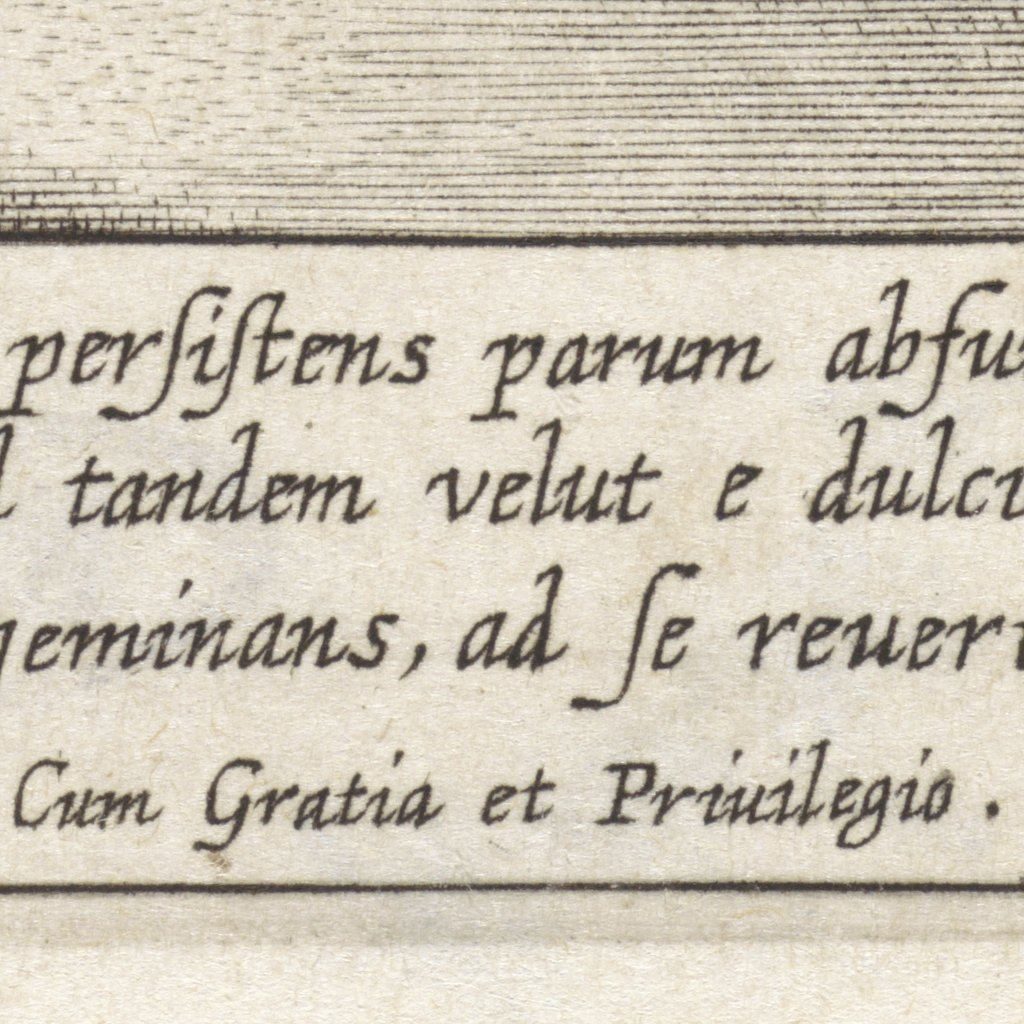 perſiſtens parum abfu
tandem velut e dulci
geminans, ad ſe reuert
Cum Gratia et Priuilegio.